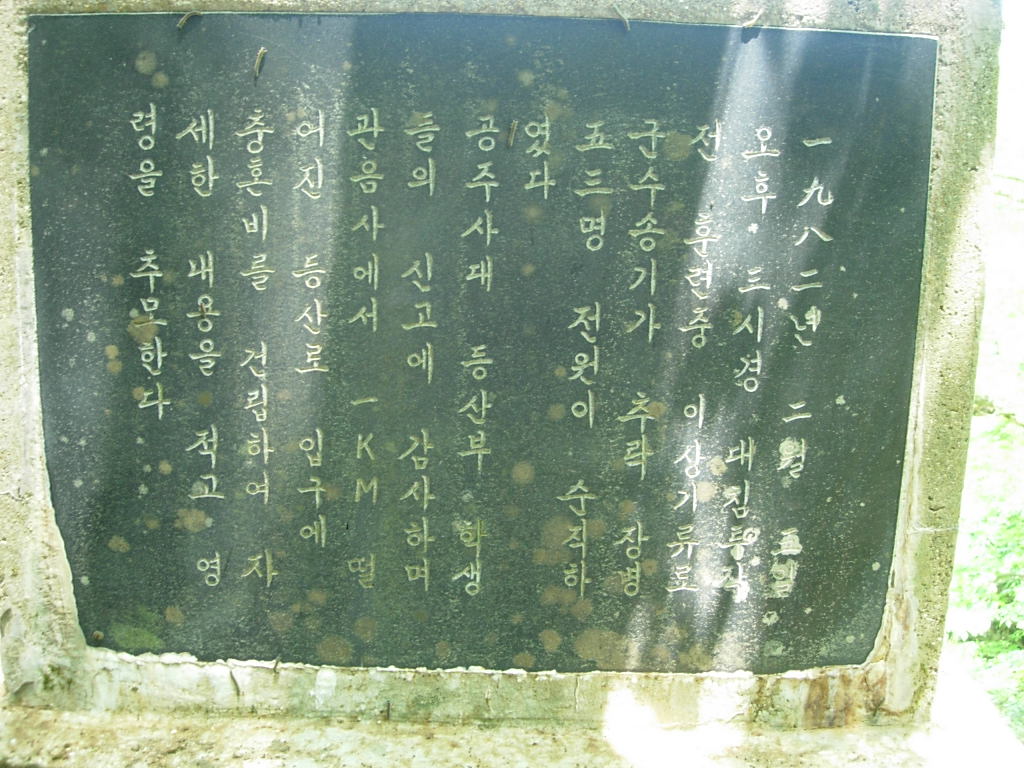 一九八二년 二월 五일
오후 三시경 대침투작
전 훈련중 이상기류로
군수송기가 추락 장병
五三명 전원이 순직하
였다
공주사대 등산부 학생
들의 신고에 감사하며
관음사에서 一KM 떨
어진 등산로 입구에
충혼비를 건립하여 자
세한 내용을 적고 영
령을 추모한다